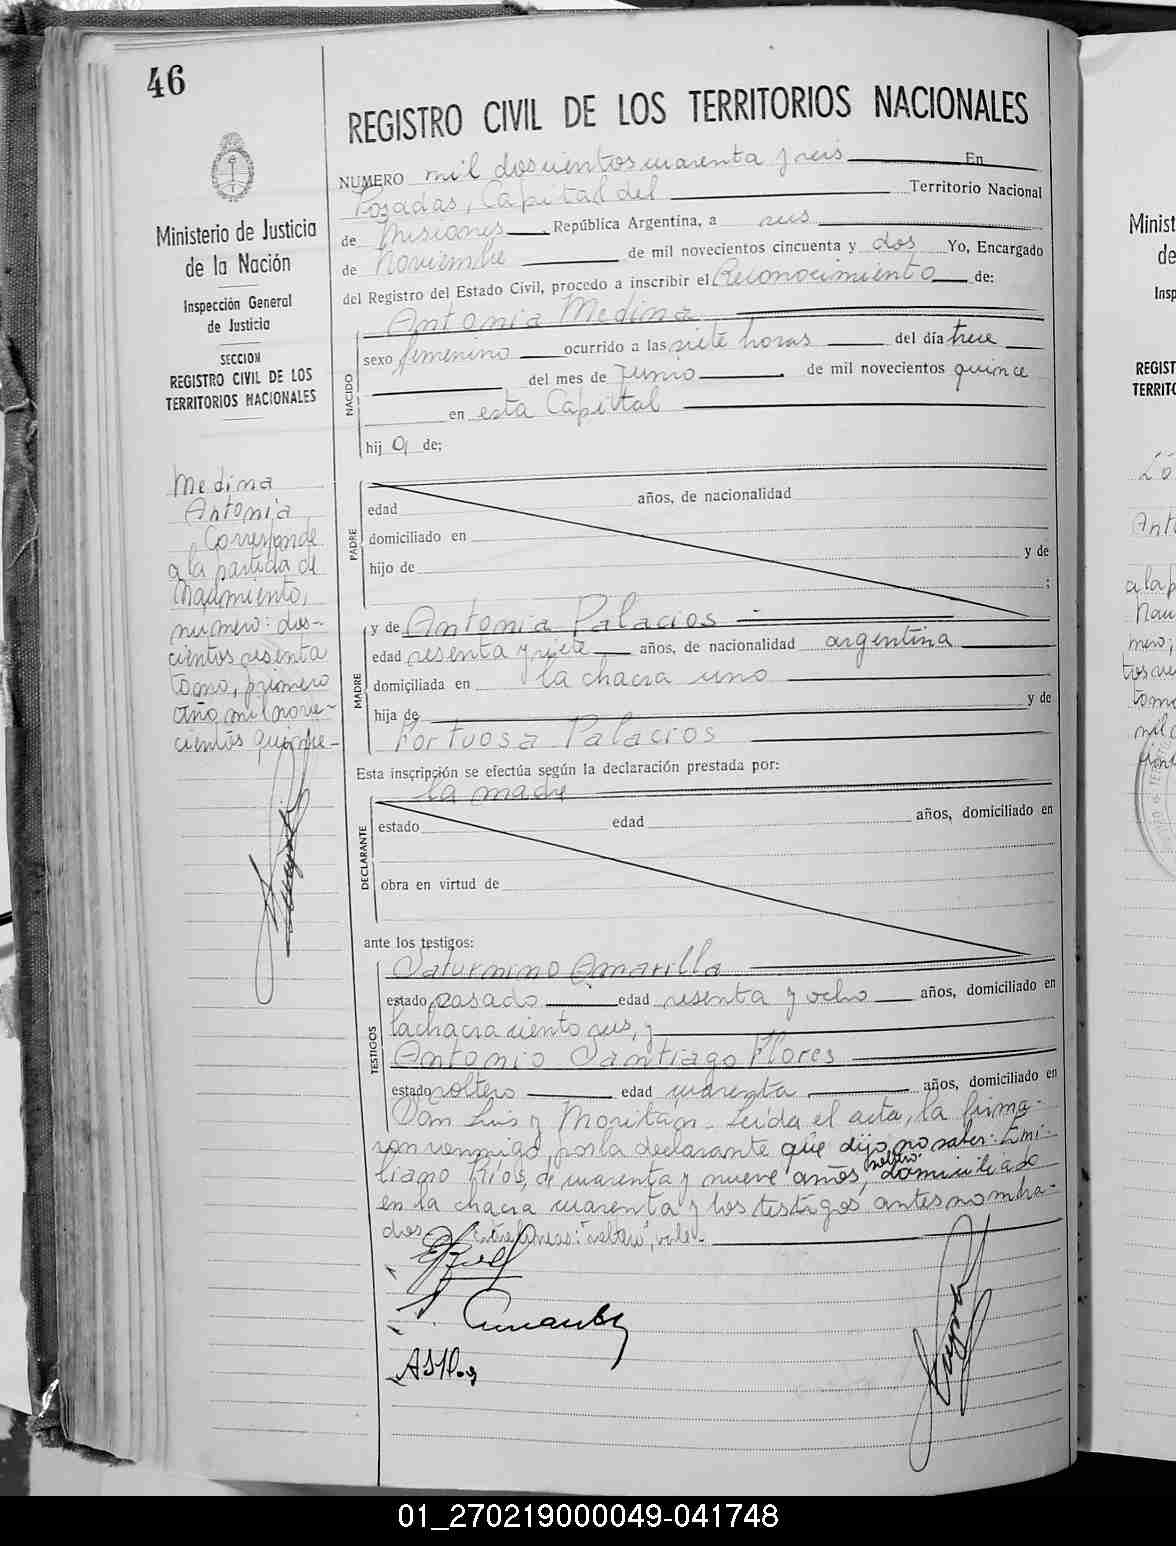 46
REGISTRO CIVIL DE LOS TERRITORIOS NACIONALES
Ministerio de Justicia
de la Nación
Inspección General
de Justicia
SECCION
REGISTRO CIVIL DE LOS
TERRITORIOS NACIONALES
Medina
Antonia
Corresponde
a la partida de
Nacimiento,
numero: dos-
cientos sesenta
tomo, primero
año mil nove-
cientos quince-
NUMERO mil doscientos cuarenta y seis En
Posadas, Capital del Territorio Nacional
de Misiones, República Argentina, a seis
de Noviembre de mil novecientos cincuenta y dos Yo, Encargado
del Registro del Estado Civil, procedo a inscribir el Reconocimiento de:
NACIDO
Antonia Medina
sexo femenino ocurrido a las siete horas del día trece
del mes de Junio de mil novecientos quince
en esta Capital
hij a de;
PADRE
edad años, de nacionalidad
domiciliado en
hijo de y de
;
MADRE
y de Antonia Palacios
edad sesenta y siete años, de nacionalidad argentina
domiciliada en la chacra uno
hija de y de
Tortuosa Palacios
Esta inscripción se efectúa según la declaración prestada por:
la madre
DECLARANTE
estado edad años, domiciliado en
obra en virtud de
ante los testigos:
TESTIGOS
Saturnino Amarilla
estado casado edad sesenta y ocho años, domiciliado en
la chacra ciento seis, y
Antonio Santiago Flores
estado soltero edad cuarenta años, domiciliado en
San Luis y Moritán. Leída el acta, la firma-
ron conmigo, por la declarante que dijo no saber: Emi-
liano Ríos, de cuarenta y nueve años, soltero domiciliado
en la chacra cuarenta y los testigos antes nombra-
dos. Entrelíneas: "soltero", vale.-
Minist
de
Insp
REGIST
TERRITO
Anto
a la p
mero,
tomo
01_270219000049-041748